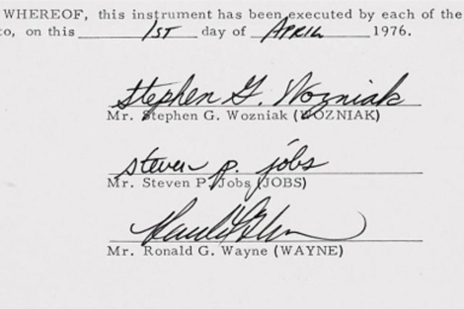 WHEREOF, this instrument has been executed by each of the
to, on this 1ST day of APRIL 1976.
Stephen G. Wozniak
Mr. Stephen G. Wozniak (WOZNIAK)
steven p. jobs
Mr. Steven P. Jobs (JOBS)
Mr. Ronald G. Wayne (WAYNE)